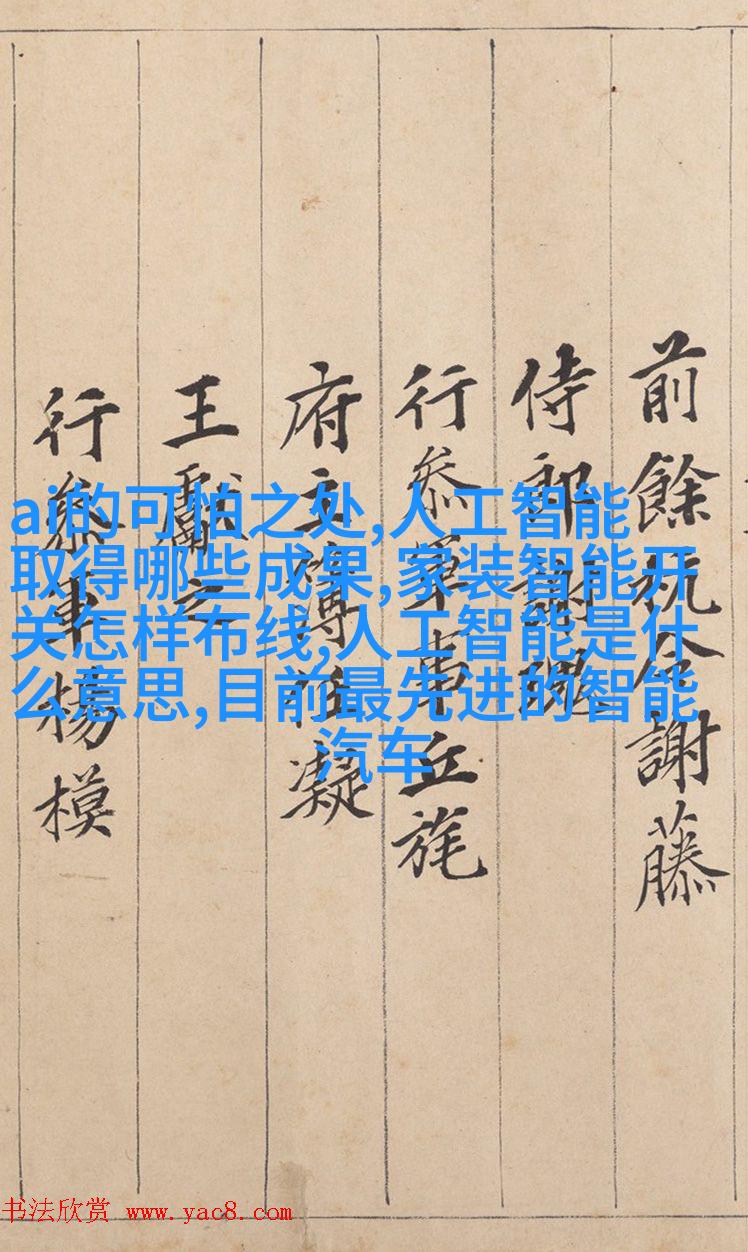 前餘杭令謝藤
侍郎謝瑰
行叅軍事丘旄
府主簿任凝
王獻之
行叅軍楊模
ai的可怕之处,人工智能
取得哪些成果,家装智能开
关怎样布线,人工智能是什
么意思,目前最先进的智能
汽车
书法欣赏 www.yac8.com